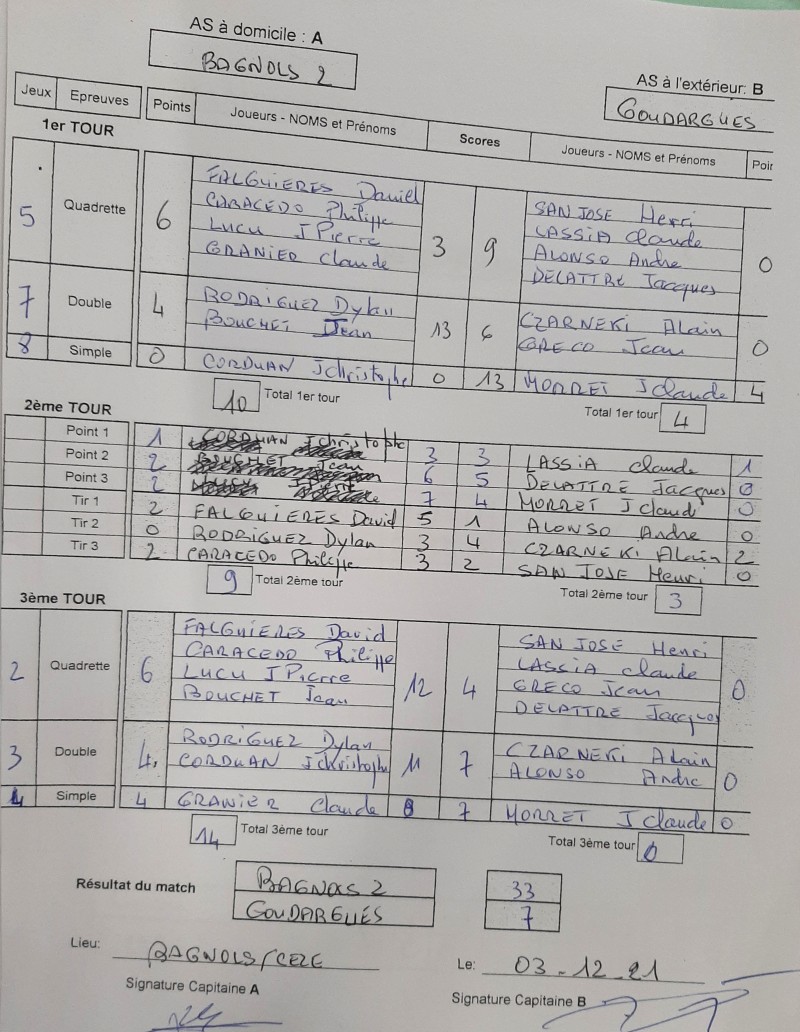 AS à domicile : A
BAGNOLS 2
AS à l'extérieur: B
GOUDARGUES
Jeux Epreuves Points Joueurs - NOMS et Prénoms Scores Joueurs - NOMS et Prénoms Poin
1er TOUR
5 Quadrette 6 3 9 0
FALGUIERES Daniel SAN JOSE Henri
CARACEDO Philippe LASSIA Claude
LUCU J Pierre ALONSO Andre
GRANIER Claude DELATTRE Jacques
7 Double 4 13 6 0
RODRIGUEZ Dylan CZARNEKI Alain
BOUCHET Jean GRECO Jean
8 Simple 0 CORDUAN J christophe 0 13 MORRET J claude 4
10 Total 1er tour Total 1er tour 4
2ème TOUR
Point 1 1 CORDUAN J christophe 3 3 LASSIA claude 1
Point 2 2 BOUCHET Jean 6 5 DELATTRE Jacques 0
Point 3 2 7 4 MORRET J claud 0
Tir 1 2 FALGUIERES David 5 1 ALONSO Andre 0
Tir 2 0 RODRIGUEZ Dylan 3 4 CZARNEKI Alain 2
Tir 3 2 CARACEDO Philippe 3 2 SAN JOSE Henri 0
9 Total 2ème tour Total 2ème tour 3
3ème TOUR
2 Quadrette 6 12 4 0
FALGUIERES David SAN JOSE Henri
CARACEDO Philippe LASSIA claude
LUCU J Pierre GRECO Jean
BOUCHET Jean DELATTRE Jacques
3 Double 4 11 7 0
RODRIGUEZ Dylan CZARNEKI Alain
CORDUAN J christophe ALONSO Andre
Simple 4 GRANIER Claude 8 7 MORRET J claude 0
14 Total 3ème tour Total 3ème tour 0
Résultat du match BAGNOLS 2 33
GOUDARGUES 7
Lieu: BAGNOLS/CEZE Le: 03-12-21
Signature Capitaine A Signature Capitaine B